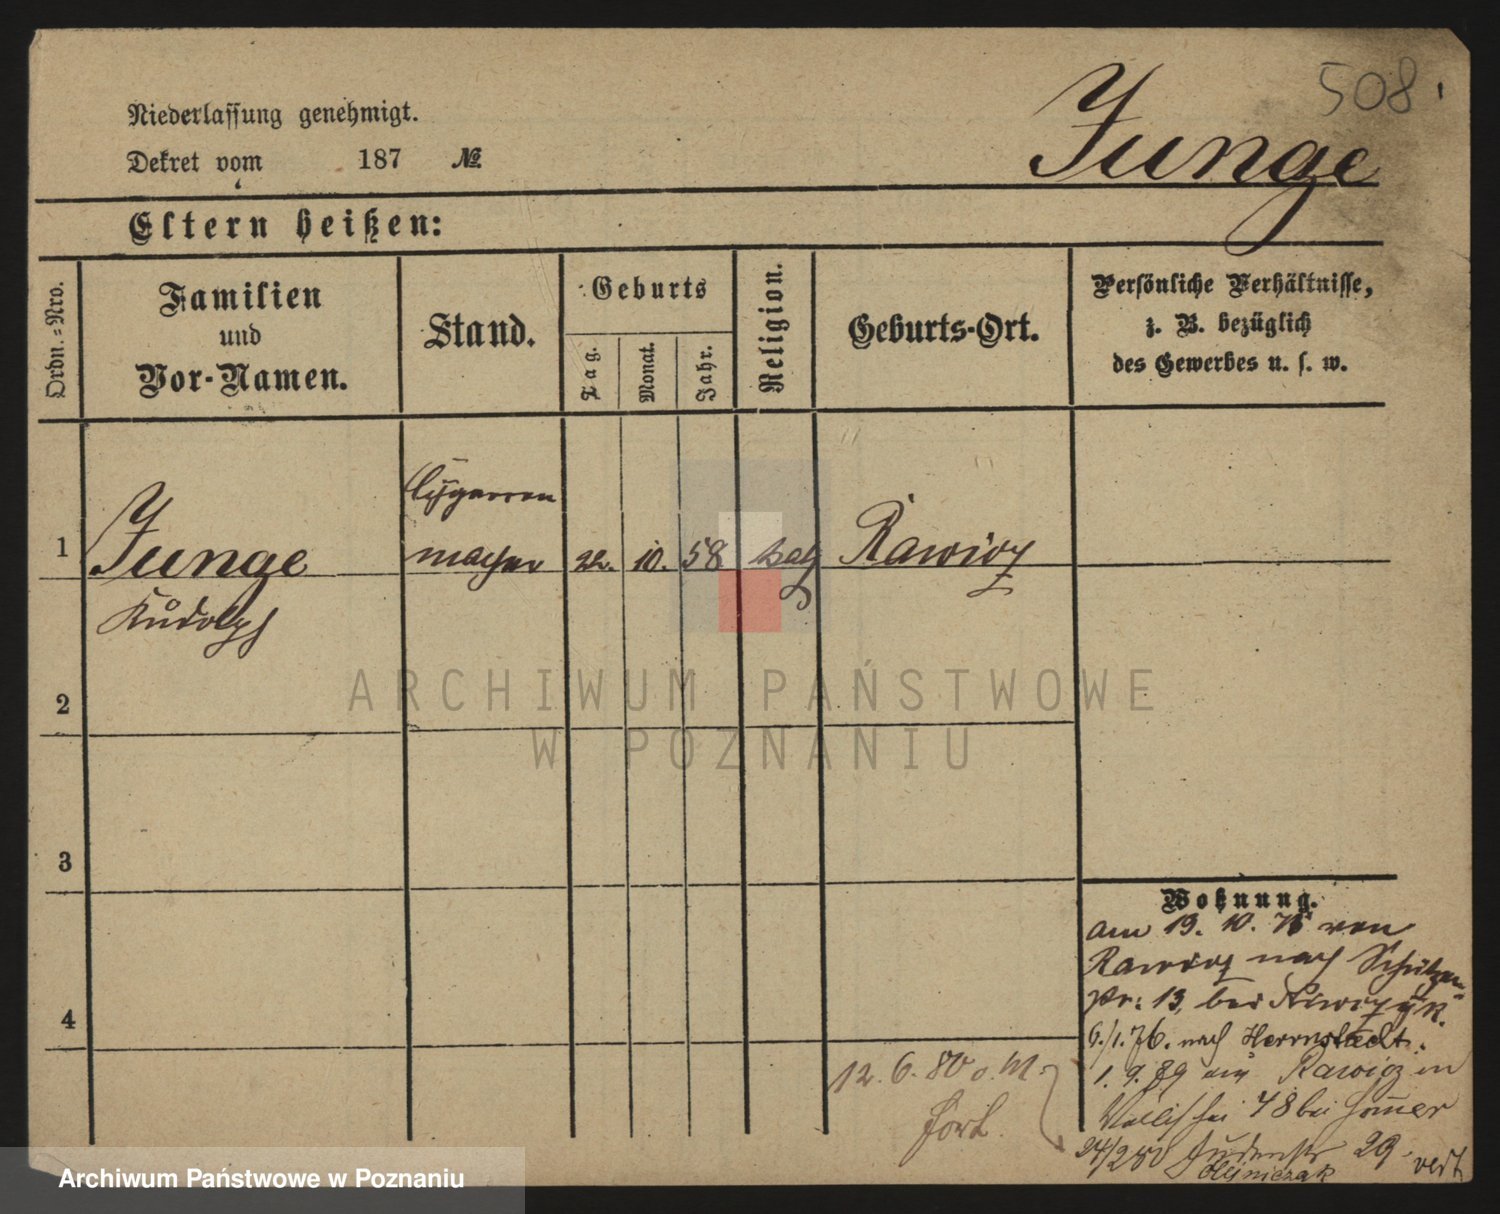 508
Niederlassung genehmigt.
Dekret vom 187 №
Junge
Eltern heißen:
Ordn.=Nro.
Familien
und
Vor-Namen.
Stand.
Geburts
Tag.
Monat.
Jahr.
Religion.
Geburts-Ort.
Persönliche Verhältnisse,
z. B. bezüglich
des Gewerbes u. s. w.
Cigarren
1 Junge macher 22. 10. 58 kath Rawicz
Rudolph
2
3
4
Wohnung.
am 19. 10. 75 von
Rawicz nach Schützen
str: 13, bei
6./1. 76. nach Herrnstadt.
1. 9. 89 aus Rawicz in
Wallischei 48 bei
12. 6. 80 o. M.
fort.
24/2 80 Judenstr 29.
Olejniczak
vert
ARCHIWUM PAŃSTWOWE
W POZNANIU
Archiwum Państwowe w Poznaniu